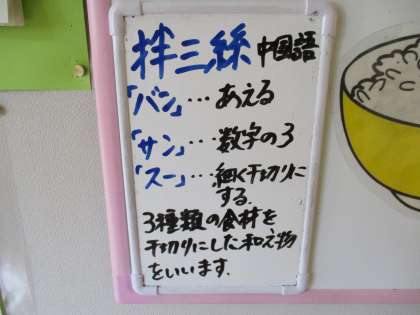 拌三絲 中国語
「バン」…あえる
「サン」…数字の3
「スー」…細く千切りに
する.
3種類の食材を
千切りにした和え物
をいいます.